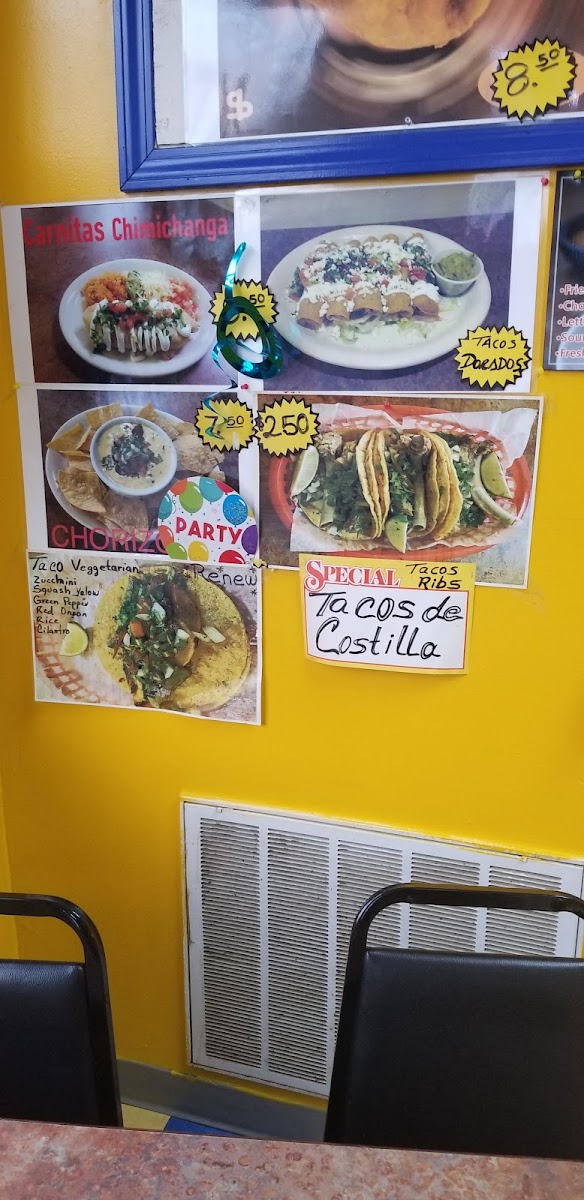 8.50
$
Carnitas Chimichanga
50
TACOS
DORADOS
7.50
$2.50
CHORIZO
PARTY
Taco Veggetarian
Zucchini
Squash yelow
Green Pepper
Red Onyon
Rice
Cilantro
Renew
SPECIAL Tacos
Ribs
Tacos de
Costilla